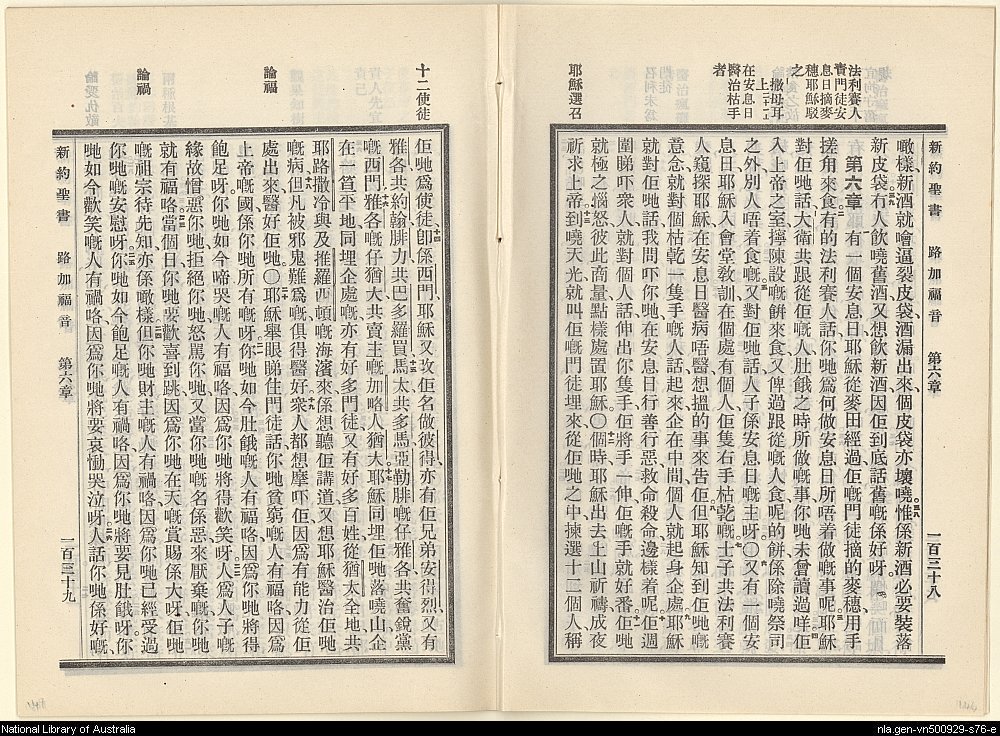 新約聖書 路加福音 第六章 一百三十八
噉樣新酒就噲逼裂皮袋酒漏出來個皮袋亦壞嘵惟係新酒必要裝落
新皮袋有人飲嘵舊酒又想飲新酒因佢到底話舊嘅係好呀
第六章 有一個安息日耶穌從麥田經過佢嘅門徒摘的麥穗用手
搓角來食有的法利賽人話你哋爲何做安息日所唔着做嘅事呢耶穌
對佢哋話大衛共跟從佢嘅人肚餓之時所做嘅事你哋未曾讀過咩佢
入上帝之室擰陳設嘅餅來食又俾過跟從嘅人食呢的餅係除嘵祭司
之外別人唔着食嘅又對佢哋話人子係安息日嘅主呀〇又有一個安
息日耶穌入會堂教訓在個處有個人佢隻右手枯乾嘅士子共法利賽
人窺探耶穌在安息日醫病唔醫想搵的事來告佢但耶穌知到佢哋嘅
意念就對個枯乾一隻手嘅人話起來企在中間個人就起身企處耶穌
就對佢哋話我問吓你哋在安息日行善行惡救命殺命邊樣着呢佢週
圍睇吓衆人就對個人話伸出你隻手佢將手一伸佢嘅手就好番佢哋
就極之惱怒彼此商量點樣處置耶穌〇個時耶穌出去上山祈禱成夜
祈求上帝到嘵天光就叫佢嘅門徒埋來從佢哋之中揀選十二個人稱
法利賽人
責門徒安
息日摘麥
穗耶穌駁
之
撒母耳
上二十一
在安息日
醫治枯手
者
耶穌選召
十二使徒
佢哋爲使徒卽係西門耶穌又改佢名做彼得亦有佢兄弟安得烈又有
雅各共約翰腓力共巴多羅買馬太共多馬亞勒腓嘅仔雅各共奮銳黨
嘅西門雅各嘅仔猶大共賣主嘅加略人猶大耶穌同埋佢哋落嘵山企
在一笪平地同埋企處嘅亦有好多門徒又有好多百姓從猶太全地共
耶路撒冷與及推羅西頓嘅海濱來係想聽佢講道又想耶穌醫治佢哋
嘅病但凡被邪鬼難爲嘅俱得醫好衆人都想摩吓佢因爲有能力從佢
處出來醫好佢哋〇耶穌舉眼睇住門徒話你哋貧窮嘅人有福咯因爲
上帝嘅國係你哋所有嘅呀你哋如今肚餓嘅人有福咯因爲你哋將得
飽足呀你哋如今啼哭嘅人有福咯因爲你哋將得歡笑呀人爲人子嘅
緣故憎惡你哋拒絕你哋怒罵你哋又當你哋嘅名係惡來厭棄嘅你哋
就有福咯當個日你哋要歡喜到跳因爲你哋在天嘅賞賜係大呀佢哋
嘅祖宗待先知亦係噉樣但你哋財主嘅人有禍咯因爲你哋已經受過
你哋嘅安慰呀你哋如今飽足嘅人有禍咯因爲你哋將要見肚餓呀你
哋如今歡笑嘅人有禍咯因爲你哋將要哀慟哭泣呀人話你哋係好嘅
新約聖書 路加福音 第六章 一百三十九
論福
論禍
National Library of Australia
nla.gen-vn500929-s76-e